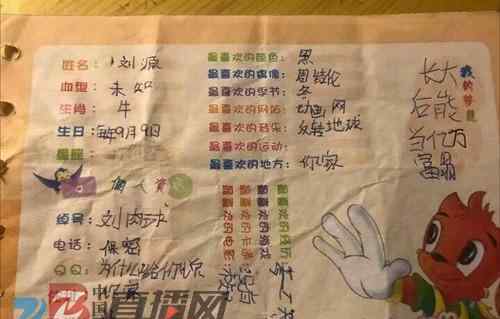 姓名：刘源
血型：未知
生肖：牛
生日：每年9月9日
星座：
个人资
绰号：刘肉球
电话：保密
QQ：为什么给你
最喜欢的颜色：黑
最喜欢的偶像：周杰伦
最喜欢的季节：冬
最喜欢的网站：动画网
最喜欢的音乐：反转地球
最喜欢的运动：
最喜欢的地方：你家
最喜欢的游戏
最喜欢的卡通
最喜欢的电影
没有
我的梦想
长大
后能
当亿万
富翁
直播网
中国